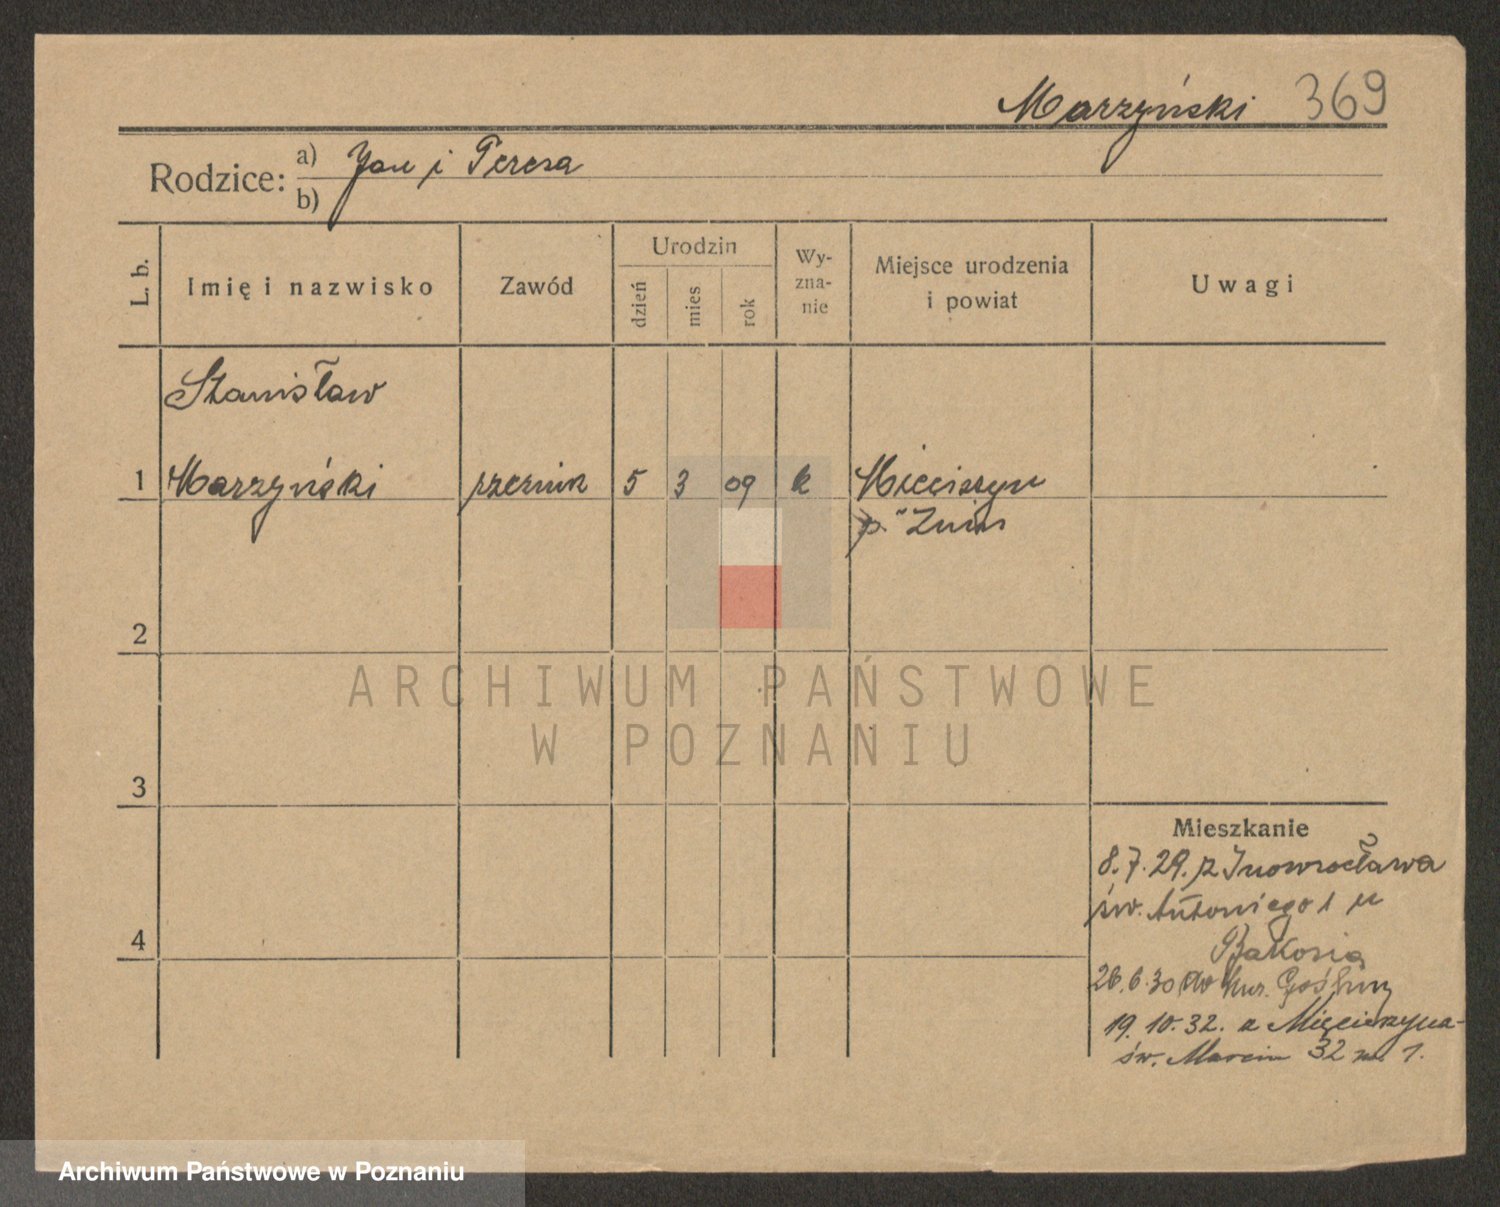 Marzyński 369
Rodzice: a) Jan i Teresa
b)
L. b.
Imię i nazwisko
Zawód
Urodzin
dzień
mies
rok
Wy-
zna-
nie
Miejsce urodzenia
i powiat
Uwagi
Stanisław
1 Marzyński rzeźnik 5 3 09 k Mięcirzyn
p. Żnin
2
3
4
Mieszkanie
8.7.29. z Inowrocława
św. Antoniego 1 u
26.6.30 do Mur. Gośliny
19.10.32. z Mięcierzyna-
św. Marcin 32 m. 1.
ARCHIWUM PAŃSTWOWE
W POZNANIU
Archiwum Państwowe w Poznaniu